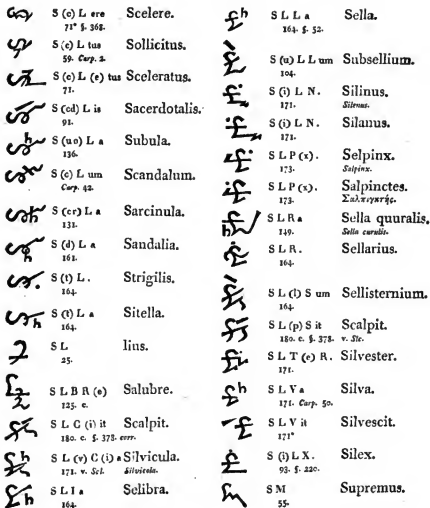 S (c) L ere Scelere.
71* §. 368.
S (c) L tus Sollicitus.
59. Carp. 2.
S (c) L (e) tus Sceleratus.
71.
S (cd) L is Sacerdotalis.
91.
S (uo) L a Subula.
136.
S (c) L um Scandalum.
Carp. 42.
S (cr) L a Sarcinula.
131.
S (d) L a Sandalia.
161.
S (t) L . Strigilis.
164.
S (t) L a Sitella.
164.
S L lius.
25.
S L B R (e) Salubre.
125. c.
S L C (i) it Scalpit.
180. c. §. 378. corr.
S L (v) C (i) a Silvicula.
171. v. Scl. Silvicola.
S L I a Selibra.
164.
S L L a Sella.
164. §. 52.
S (u) L L um Subsellium.
104.
S (i) L N. Silinus.
171. Silenus.
S (i) L N. Silanus.
171.
S L P (x). Selpinx.
173. Salpinx.
S L P (x). Salpinctes.
173. Σαλπιγκτής.
S L R a Sella quuralis.
149. Sella curulis.
S L R. Sellarius.
164.
S L (l) S um Sellisternium.
164.
S L (p) S it Scalpit.
180. c. §. 378. v. Slc.
S L T (e) R. Silvester.
171.
S L V a Silva.
171. Carp. 50.
S L V it Silvescit.
171*
S (i) L X. Silex.
93. §. 220.
S M Supremus.
55.